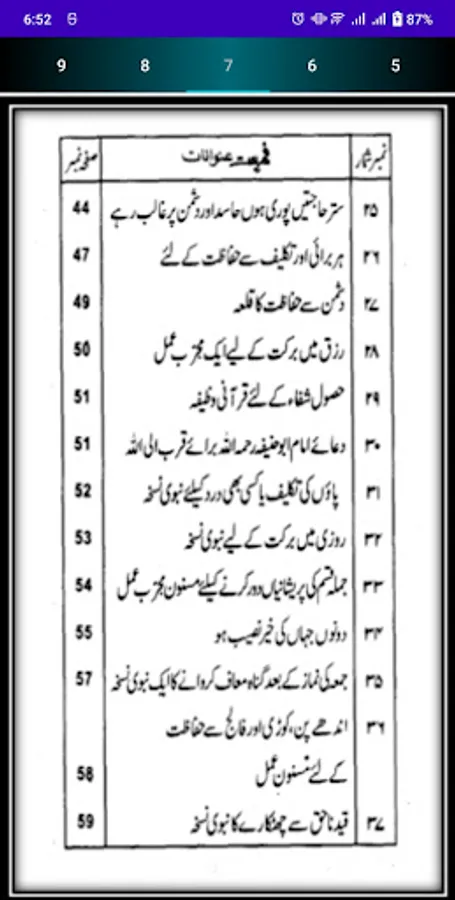 6:52 87%
9 8 7 6 5
نمبر شمار فہرست عنوانات صفحہ نمبر
۲۵ ستر حاجتیں پوری ہوں حاسد اور دشمن پر غالب رہے 44
۲۶ ہر برائی اور تکلیف سے حفاظت کے لئے 47
۲۷ دشمن سے حفاظت کا قلعہ 49
۲۸ رزق میں برکت کے لیے ایک مجرّب عمل 50
۲۹ حصول شفاء کے لئے قرآنی وظیفہ 51
۳۰ دعائے امام ابو حنیفہ رحمہ اللہ برائے قرب الی اللہ 51
۳۱ پاؤں کی تکلیف یا کسی بھی درد کیلئے نبوی نسخہ 52
۳۲ روزی میں برکت کے لیے نبوی نسخہ 53
۳۳ جملہ قسم کی پریشانیاں دور کرنے کیلئے مسنون مجرّب عمل 54
۳۴ دونوں جہاں کی خیر نصیب ہو 55
۳۵ جمعہ کی نماز کے بعد گناہ معاف کروانے کا ایک نبوی نسخہ 57
۳۶ اندھے پن، کوڑی اور فالج سے حفاظت
کے لئے مسنون عمل 58
۳۷ قید ناحق سے چھٹکارے کا نبوی نسخہ 59